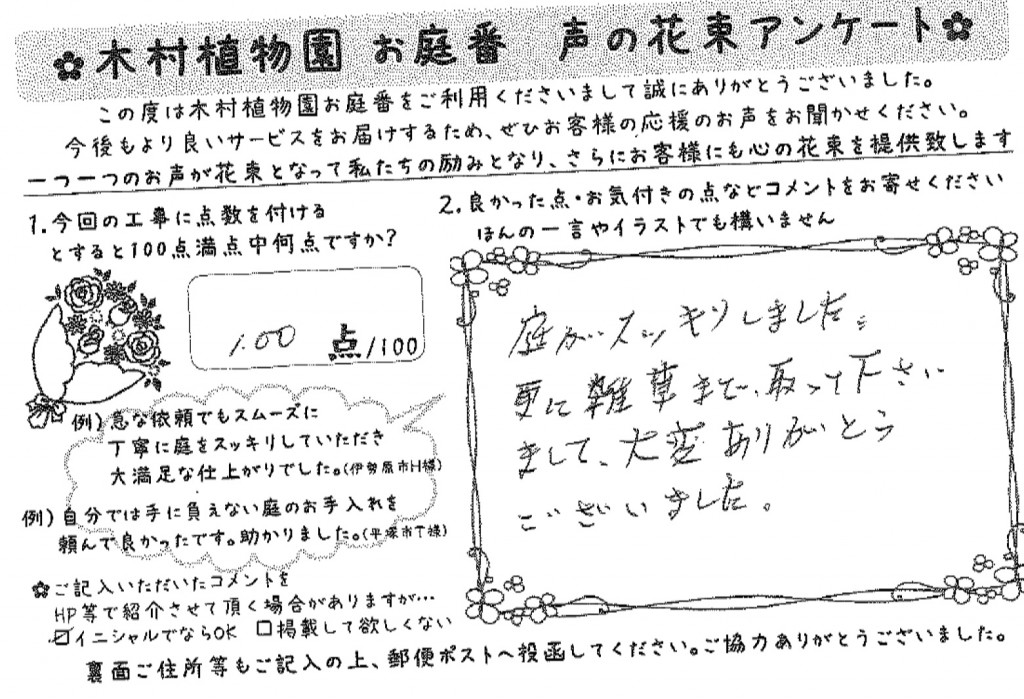 ✿木村植物園 お庭番 声の花束アンケート✿
この度は木村植物園お庭番をご利用くださいまして誠にありがとうございました。
今後もより良いサービスをお届けするため、ぜひお客様の応援のお声をお聞かせください。
一つ一つのお声が花束となって私たちの励みとなり、さらにお客様にも心の花束を提供致します
1.今回の工事に点数を付ける
とすると100点満点中何点ですか?
100 点/100
例)急な依頼でもスムーズに
丁寧に庭をスッキリしていただき
大満足な仕上がりでした。(伊勢原市H様)
例)自分では手に負えない庭のお手入れを
頼んで良かったです。助かりました。(平塚市T様)
✿ご記入いただいたコメントを
HP等で紹介させて頂く場合がありますが…
☑イニシャルでならOK □掲載して欲しくない
2.良かった点・お気付きの点などコメントをお寄せください
ほんの一言やイラストでも構いません
庭がスッキリしました。
更に雑草まで、取って下さい
まして、大変ありがとう
ございました。
裏面ご住所等もご記入の上、郵便ポストへ投函してください。ご協力ありがとうございました。